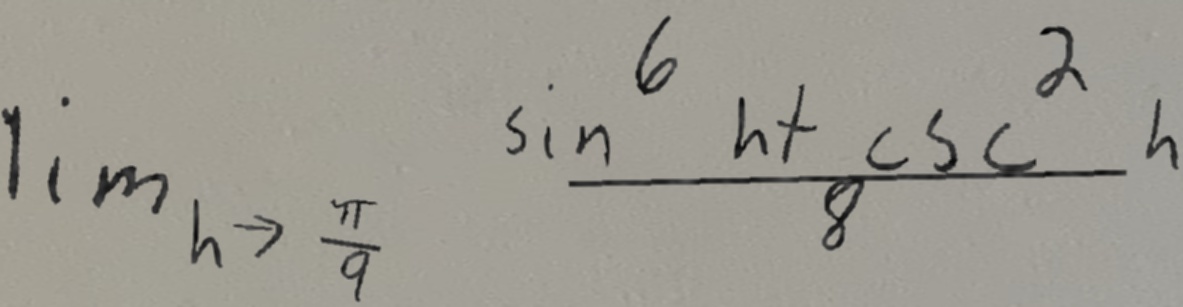 lim h→ π/9 sin⁶ h+ csc² h / 8